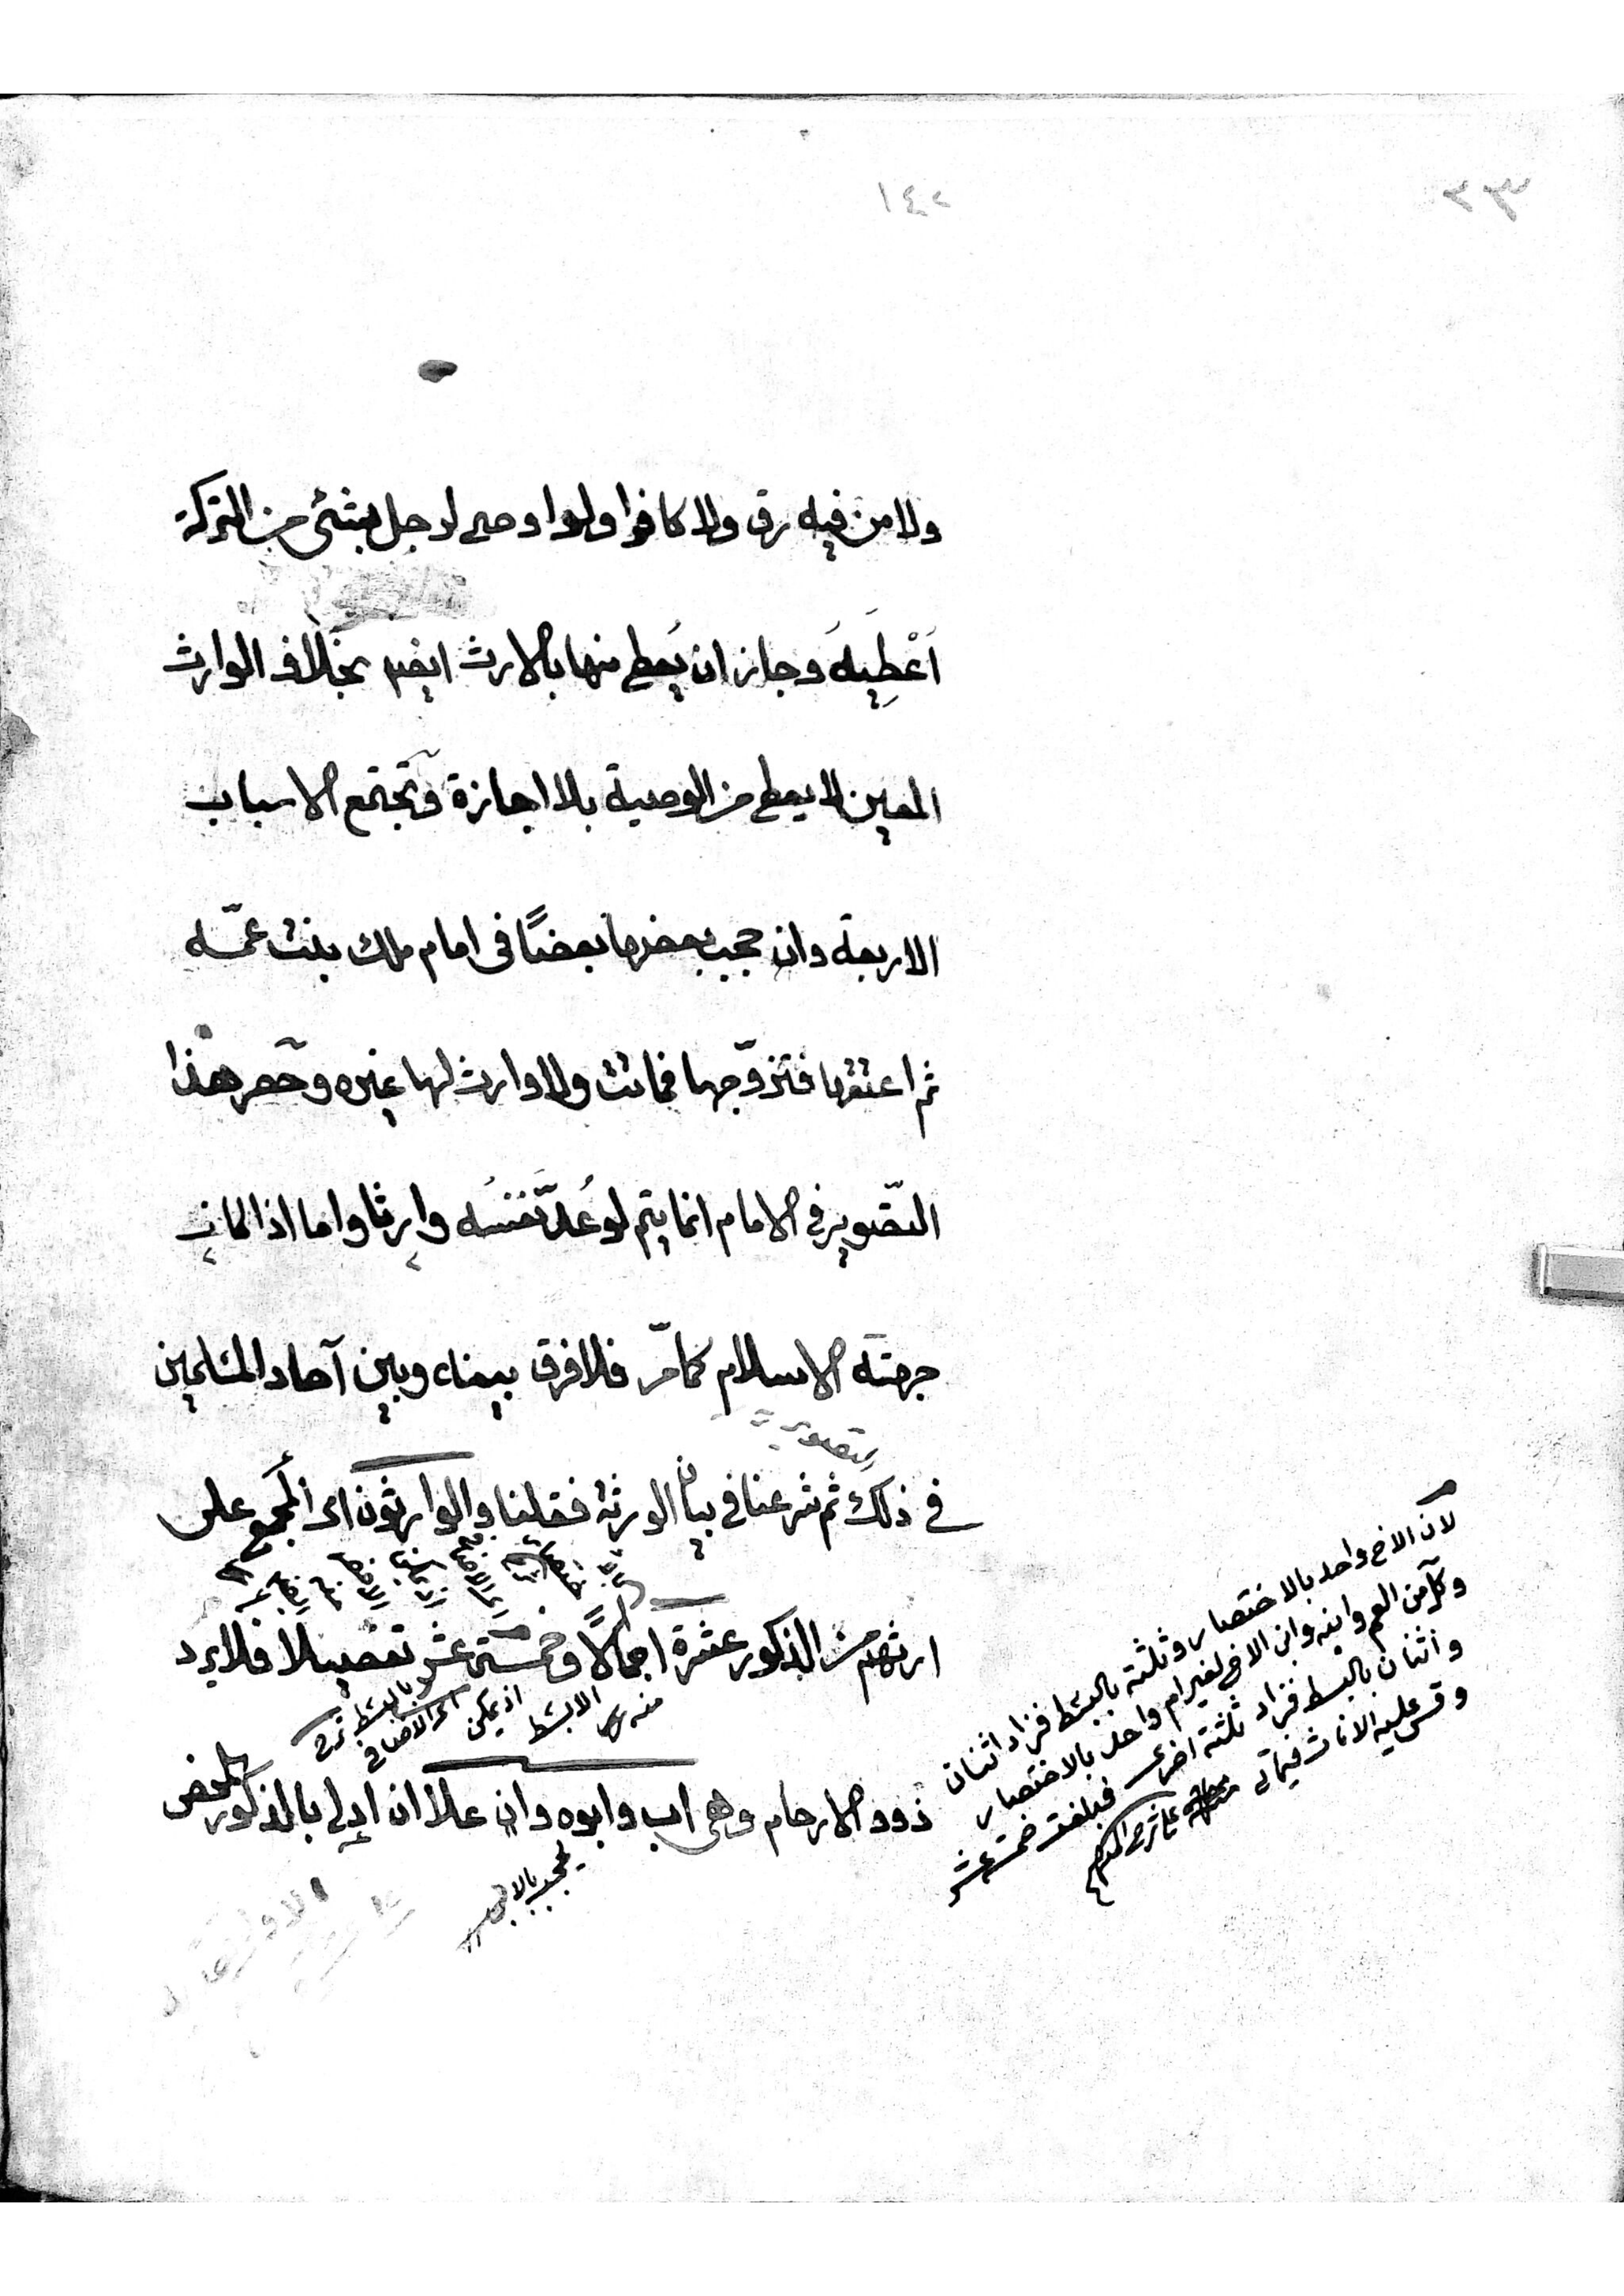 ١٤٢
ولا من فيه رق ولا كافرا ولو اوصى لرجل بشئ من التركة
اُعْطِيَهُ وجاز ان يُعطى منها بالارث ايضا بخلاف الوارث
المعين لا يعطى من الوصية بلا اجازة وتجتمع الاسباب
الاربعة وان حجب بعضها بعضًا فى امام ملك بنت عمّه
ثم اعتقها فتزوّجها فماتت ولا وارث لها غيره وحصر هذا
التّصوير فى الامام انما يتم لو عُدّ نفسُه وارثا واما اذا كان
جهته الاسلام كما مرّ فلا فرق بينه وبين آحاد المسلمين
فى ذلك ثم شرعنا فى بيان الورثة فقلنا والوارثون اى المجمع على
ارثهم من الذكور عشرة اجمالًا وخمسة عشر تفصيلا فلا يرد
ذوو الارحام وهى اب وابوه وان علا ان ادلى بالذكور المحض
لان الاخ واحد بالاختصار وثلثة بالبسط فزاد اثنان
وكل من العم وابنه وابن الاخ لغير ام واحد بالاختصار
واثنان بالبسط فزاد ثلثة اخرى فبلغت خمسة عشر
وقس عليه الاناث
يحجب بالاب